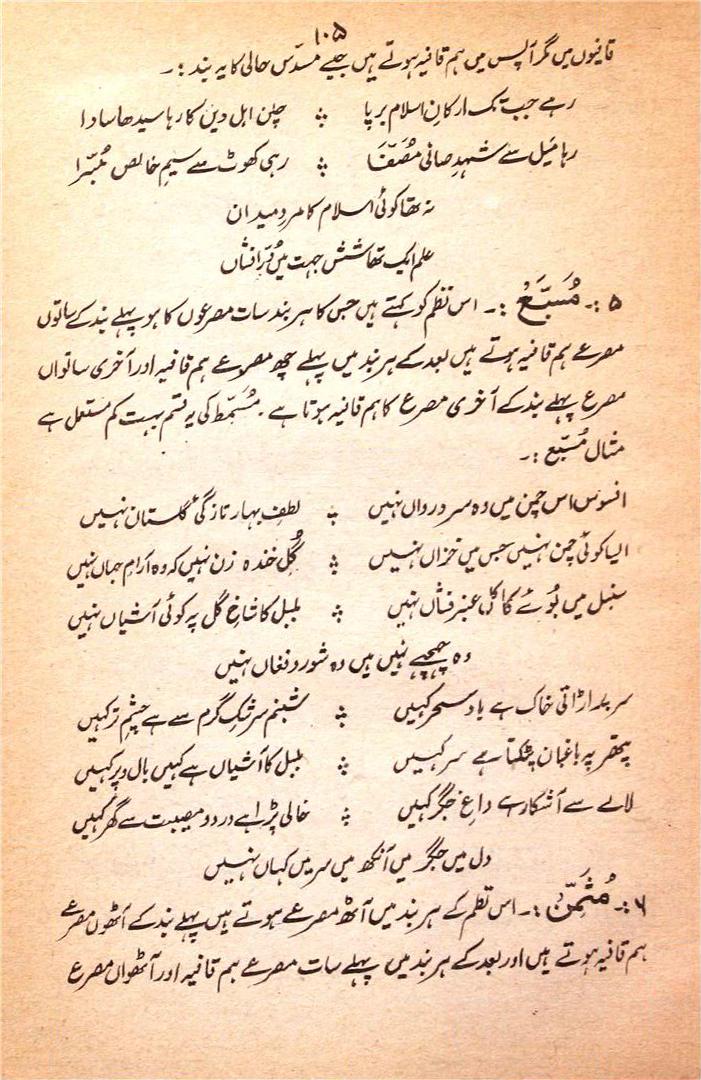 ۱۰۵
قافیوں میں مگر آپس میں ہم قافیہ ہوتے ہیں جیسے مسدّس حالی کا یہ بند :۔
رہے جب تک ارکانِ اسلام برپا ؞ چلن اہلِ دیں کا رہا سیدھا سادا
رہا میَل سے شہدِ صافی مُصَفّا ؞ رہی کھوٹ سے سیمِ خالص مُبّرا
نہ تھا کوئی اسلام کا مردِ میداں
علم ایک تھا شش جہت میں دُر افشاں
۵ :۔ مُسَبَّع :۔ اس نظم کو کہتے ہیں جس کا ہر بند سات مصرعوں کا ہو پہلے بند کے ساتوں
مصرعے ہم قافیہ ہوتے ہیں بعد کے ہر بند میں پہلے چھ مصرعے ہم قافیہ اور آخری ساتواں
مصرع پہلے بند کے آخری مصرع کا ہم قافیہ ہوتا ہے . مُسَمّط کی یہ قسم بہت کم مستعمل ہے
مثال مُسبّع :۔
افسوس اس چمن میں وہ سرو رواں نہیں ؞ لطفِ بہار تازگیٔ گلستان نہیں
ایسا کوئی چمن نہیں جس میں خزاں نہیں ؞ گُل خندہ زن نہیں کہ وہ آرامِ جہاں نہیں
سنبل میں بُوئے کاکلِ عنبر فشاں نہیں ؞ بلبل کا شاخِ گل پہ کوئی آشیاں نہیں
وہ چہچہے نہیں ہیں وہ شور و فغاں نہیں
سر پہ اڑاتی خاک ہے بادِ سحر کہیں ؞ شبنم سرشکِ گرم سے ہے چشمِ تر کہیں
پتھر پہ باغبان پٹکتا ہے سر کہیں ؞ بلبل کا آشیاں ہے کہیں بال و پر کہیں
لالے سے آشکار ہے داغِ جگر کہیں ؞ خالی پڑا ہے درد و مصیبت سے گھر کہیں
دل میں جگر میں آنکھ میں سر میں کہاں نہیں
۶ :۔ مُثَمّن :۔ اس نظم کے ہر بند میں آٹھ مصرعے ہوتے ہیں پہلے بند کے آٹھوں مصرعے
ہم قافیہ ہوتے ہیں اور بعد کے ہر بند میں پہلے سات مصرعے ہم قافیہ اور آٹھواں مصرع